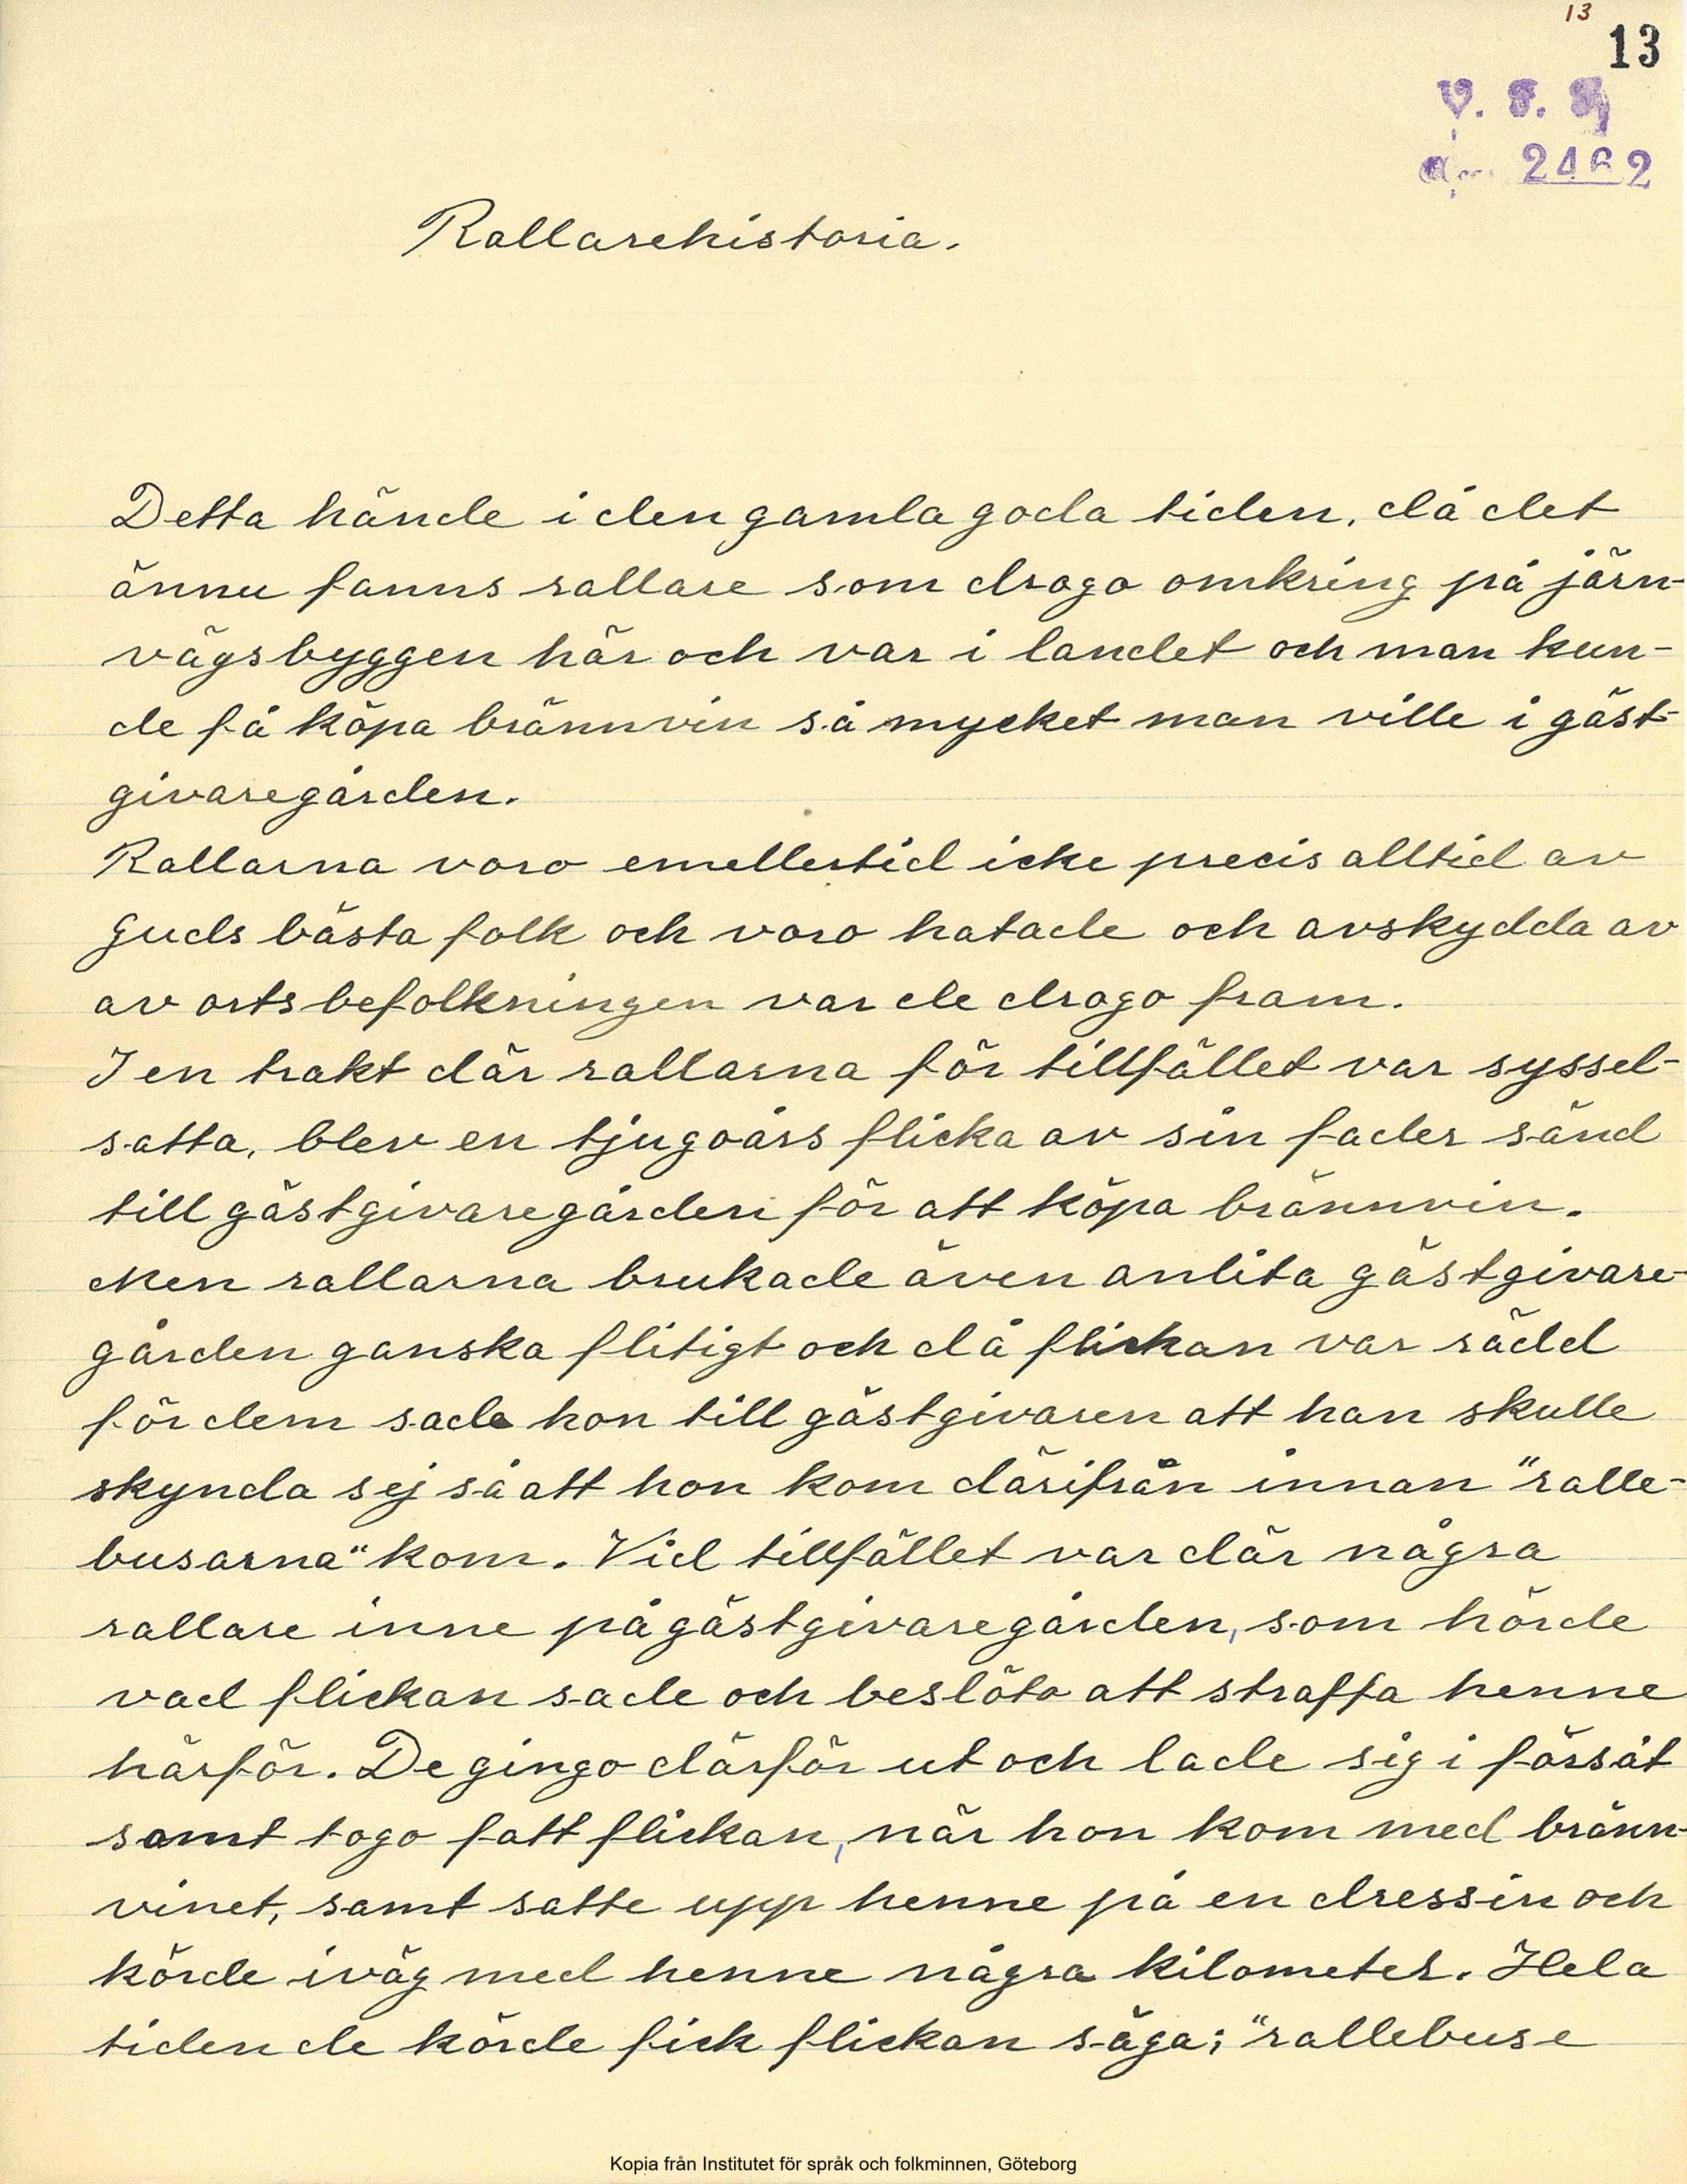 13
13
V. F. F.
2462
Rallarehistoria.
Detta hände i den gamla goda tiden, då det
ännu fanns rallare som drogo omkring på järn-
vägsbyggen här och var i landet och man kun-
de få köpa brännvin så mycket man ville i gäst-
givaregården.
Rallarna voro emellertid icke precis alltid av
Guds bästa folk och voro hatade och avskydda av
av ortsbefolkningen var de drogo fram.
I en trakt där rallarna för tillfället var syssel-
satta, blev en tjugoårs flicka av sin fader sänd
till gästgivaregården för att köpa brännvin.
Men rallarna brukade även anlita gästgivare-
gården ganska flitigt och då flickan var rädd
för dem sade hon till gästgivaren att han skulle
skynda sej så att hon kom därifrån innan "ralle-
busarna" kom. Vid tillfället var där några
rallare inne på gästgivaregården, som hörde
vad flickan sade och beslöto att straffa henne
härför. De gingo därför ut och lade sig i försåt
samt togo fatt flickan, när hon kom med bränn-
vinet, samt satte upp henne på en dressin och
körde iväg med henne några kilometer. Hela
tiden de körde fick flickan säga; "rallebuse
Kopia från Institutet för språk och folkminnen, Göteborg